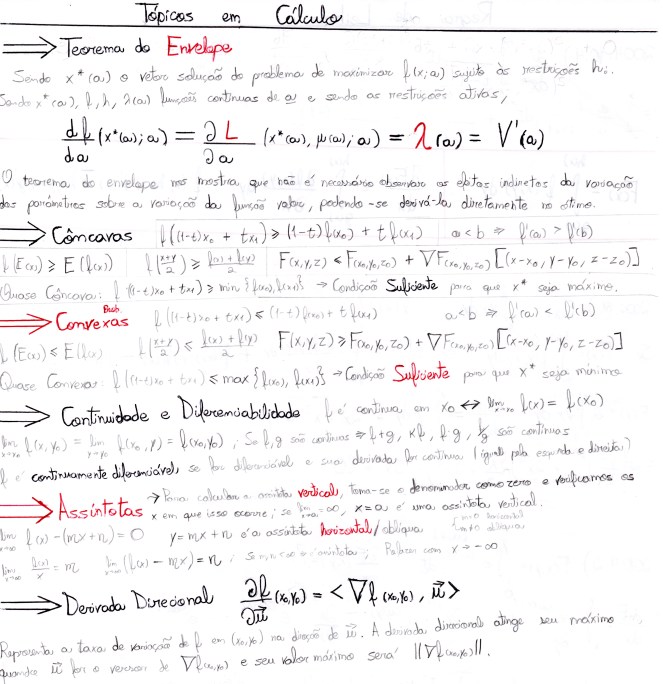 Tópicos em Cálculo
⟹ Teorema do Envelope
Sendo x*(a) o vetor solução do problema de maximizar f(x;a) sujeito às restrições hᵢ.
Sendo x*(a), f, h, λ(a) funções contínuas de a e sendo as restrições ativas,
df/da (x*(a); a) = ∂L/∂a (x*(a), μ(a); a) = λ(a) = V'(a)
O teorema do envelope nos mostra que não é necessário observar os efeitos indiretos da variação
dos parâmetros sobre a variação da função valor, podendo-se derivá-la diretamente no ótimo.
⟹ Côncavas f((1-t)x₀ + tx₁) ≥ (1-t)f(x₀) + t f(x₁) a<b ⇒ f'(a) > f'(b)
f(E(x)) ≥ E(f(x)) f((x+y)/2) ≥ (f(x) + f(y))/2 F(x,y,z) ≤ F(x₀,y₀,z₀) + ∇F(x₀,y₀,z₀) [(x-x₀, y-y₀, z-z₀)]
Quase Côncava: f((1-t)x₀ + tx₁) ≥ min {f(x₀), f(x₁)} → Condição Suficiente para que x* seja máximo.
⟹ Convexas f((1-t)x₀ + tx₁) ≤ (1-t)f(x₀) + t f(x₁) a<b ⇒ f'(a) < f'(b)
f(E(x)) ≤ E(f(x)) f((x+y)/2) ≤ (f(x) + f(y))/2 F(x,y,z) ≥ F(x₀,y₀,z₀) + ∇F(x₀,y₀,z₀) [(x-x₀, y-y₀, z-z₀)]
Quase Convexa: f((1-t)x₀ + tx₁) ≤ max {f(x₀), f(x₁)} → Condição Suficiente para que x* seja mínimo
⟹ Continuidade e Diferenciabilidade f é contínua em x₀ ↔ lim x→x₀ f(x) = f(x₀)
lim x→x₀ f(x, y₀) = lim f(x₀, y) = f(x₀,y₀) ; Se f, g são contínuas ⇒ f+g, kf, f·g, f/g são contínuas
f é continuamente diferenciável se for diferenciável e sua derivada for contínua (igual pela esquerda e direita)
⟹ Assíntotas → Para calcular a assíntota vertical, toma-se o denominador como zero e verificamos os
x em que isso ocorre; se lim = ∞, x=a é uma assíntota vertical.
lim x→∞ f(x) - (mx+n) = 0 y = mx + n é a assíntota horizontal/oblíqua {m=0 horizontal m≠0 oblíqua
lim x→∞ f(x)/x = m lim x→∞ (f(x) - mx) = n ; assíntota ; com x → -∞
⟹ Derivada Direcional ∂f/∂u⃗ (x₀,y₀) = < ∇f(x₀,y₀) , u⃗ >
Representa a taxa de variação de f em (x₀,y₀) na direção de u⃗. A derivada direcional atinge seu máximo
quando u⃗ for o versor de ∇f(x₀,y₀) e seu valor máximo será ||∇f(x₀,y₀)||.